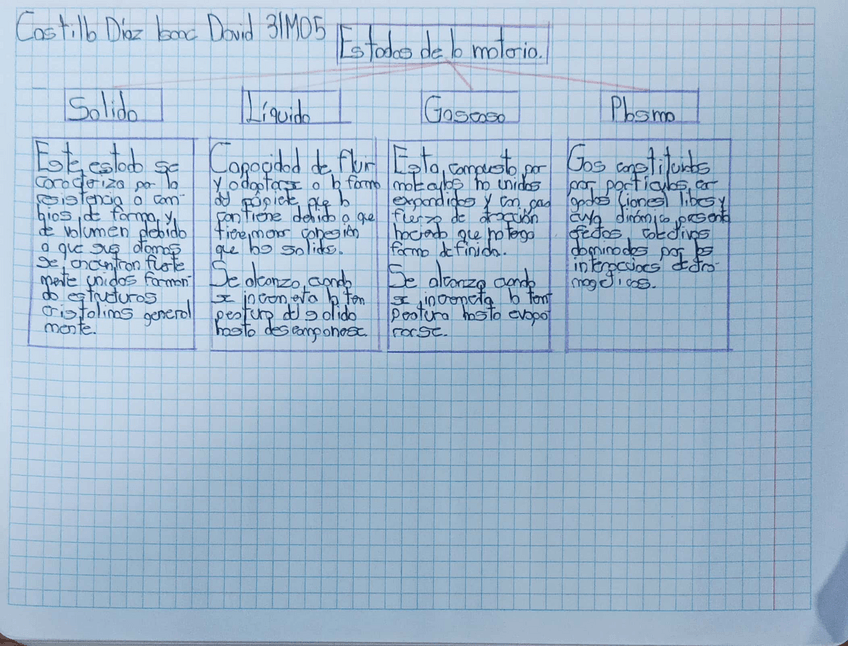 Castillo Díaz Isaac David 3IM05
Estados de la materia.
Solido
Líquido
Gaseoso
Plasma
Este estado se
caracteriza por la
resistencia a cam-
bios de forma y
de volumen debido
a que sus átomos
se encuentran fuerte
mente unidos forman-
do estructuras
cristalinas general
mente.
Capacidad de fluir
y adaptarse a la forma
del que la
contiene debido a que
tiene menor cohesión
que los solidos.
Se alcanza cuando
se incrementa la tem
peratura del solido
hasta descomponerse.
Esta compuesto por
moleculas no unidas
expandidas y con poca
fuerza de atracción
haciendo que no tenga
forma definida.
Se alcanza cuando
se incrementa la tem
peratura hasta evapo
rarse.
Gas constituido
por partículas car
gadas (iones) libres y
cuya dinámica presenta
efectos colectivos
dominados por las
interacciones electro-
magneticas.